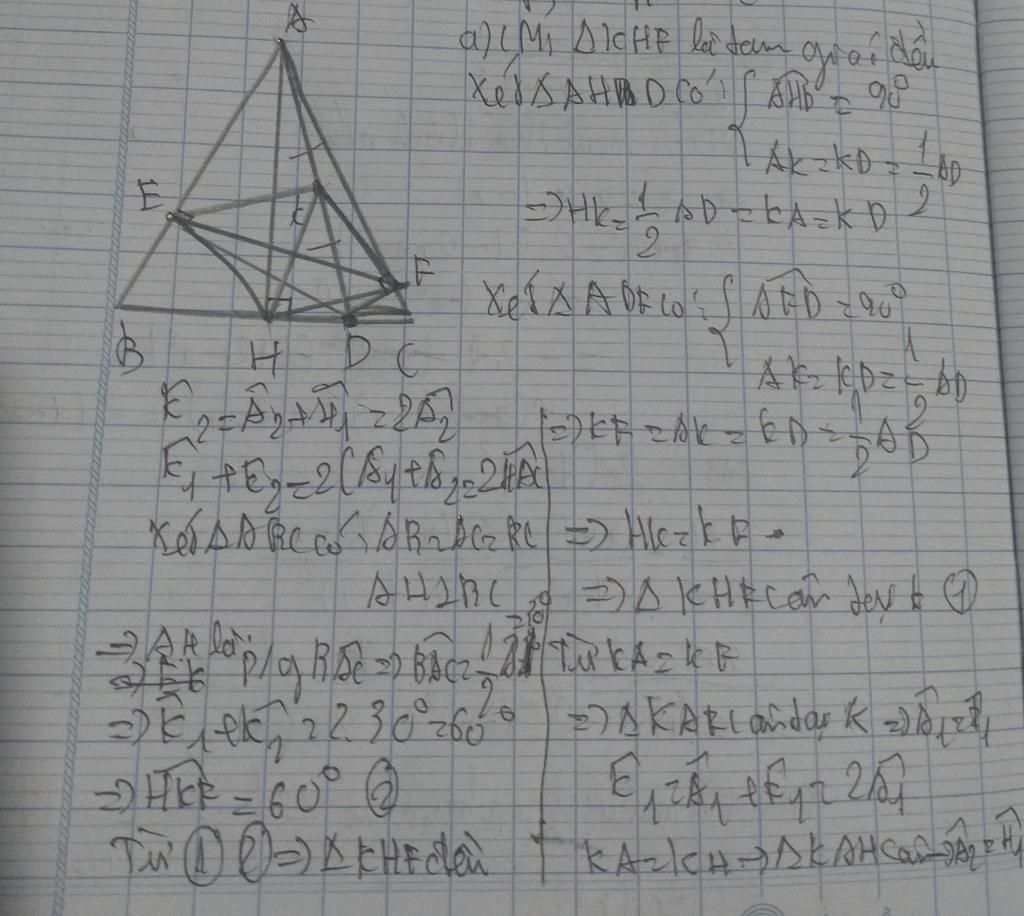 A
E
K
F
B H D C
a) CM, ΔKHF là tam giác đều
Xét ΔAHD Có: { \widehat{AHD} = 90°
AK = KD = \frac{1}{2} AD
=> HK = \frac{1}{2} AD = KA = KD
Xét ΔADF có: { \widehat{AFD} = 90°
AK = KD = \frac{1}{2} AD
=> KF = AK = KD = \frac{1}{2} AD
=> HK = KF
=> ΔKHF cân tại K ①
Từ KA = KF
=> ΔKAF cân tại K => \widehat{A}_1 = \widehat{F}_1
\widehat{K}_1 = \widehat{A}_1 + \widehat{F}_1 = 2\widehat{A}_1
KA = KH => ΔKAH cân => \widehat{A}_2 = \widehat{H}_1
\widehat{K}_2 = \widehat{A}_2 + \widehat{H}_1 = 2\widehat{A}_2
\widehat{K}_1 + \widehat{K}_2 = 2(\widehat{A}_1 + \widehat{A}_2 = 2\widehat{HAC}
Xét ΔABC có: AB = AC = BC
AH ⊥ BC
=> AH là p/g \widehat{BAC} => \widehat{BAC} = \frac{1}{2} = 30°
=> \widehat{K}_1 + \widehat{K}_2 = 2.30° = 60°
=> \widehat{HKF} = 60° ②
Từ ① ② => ΔKHF đều